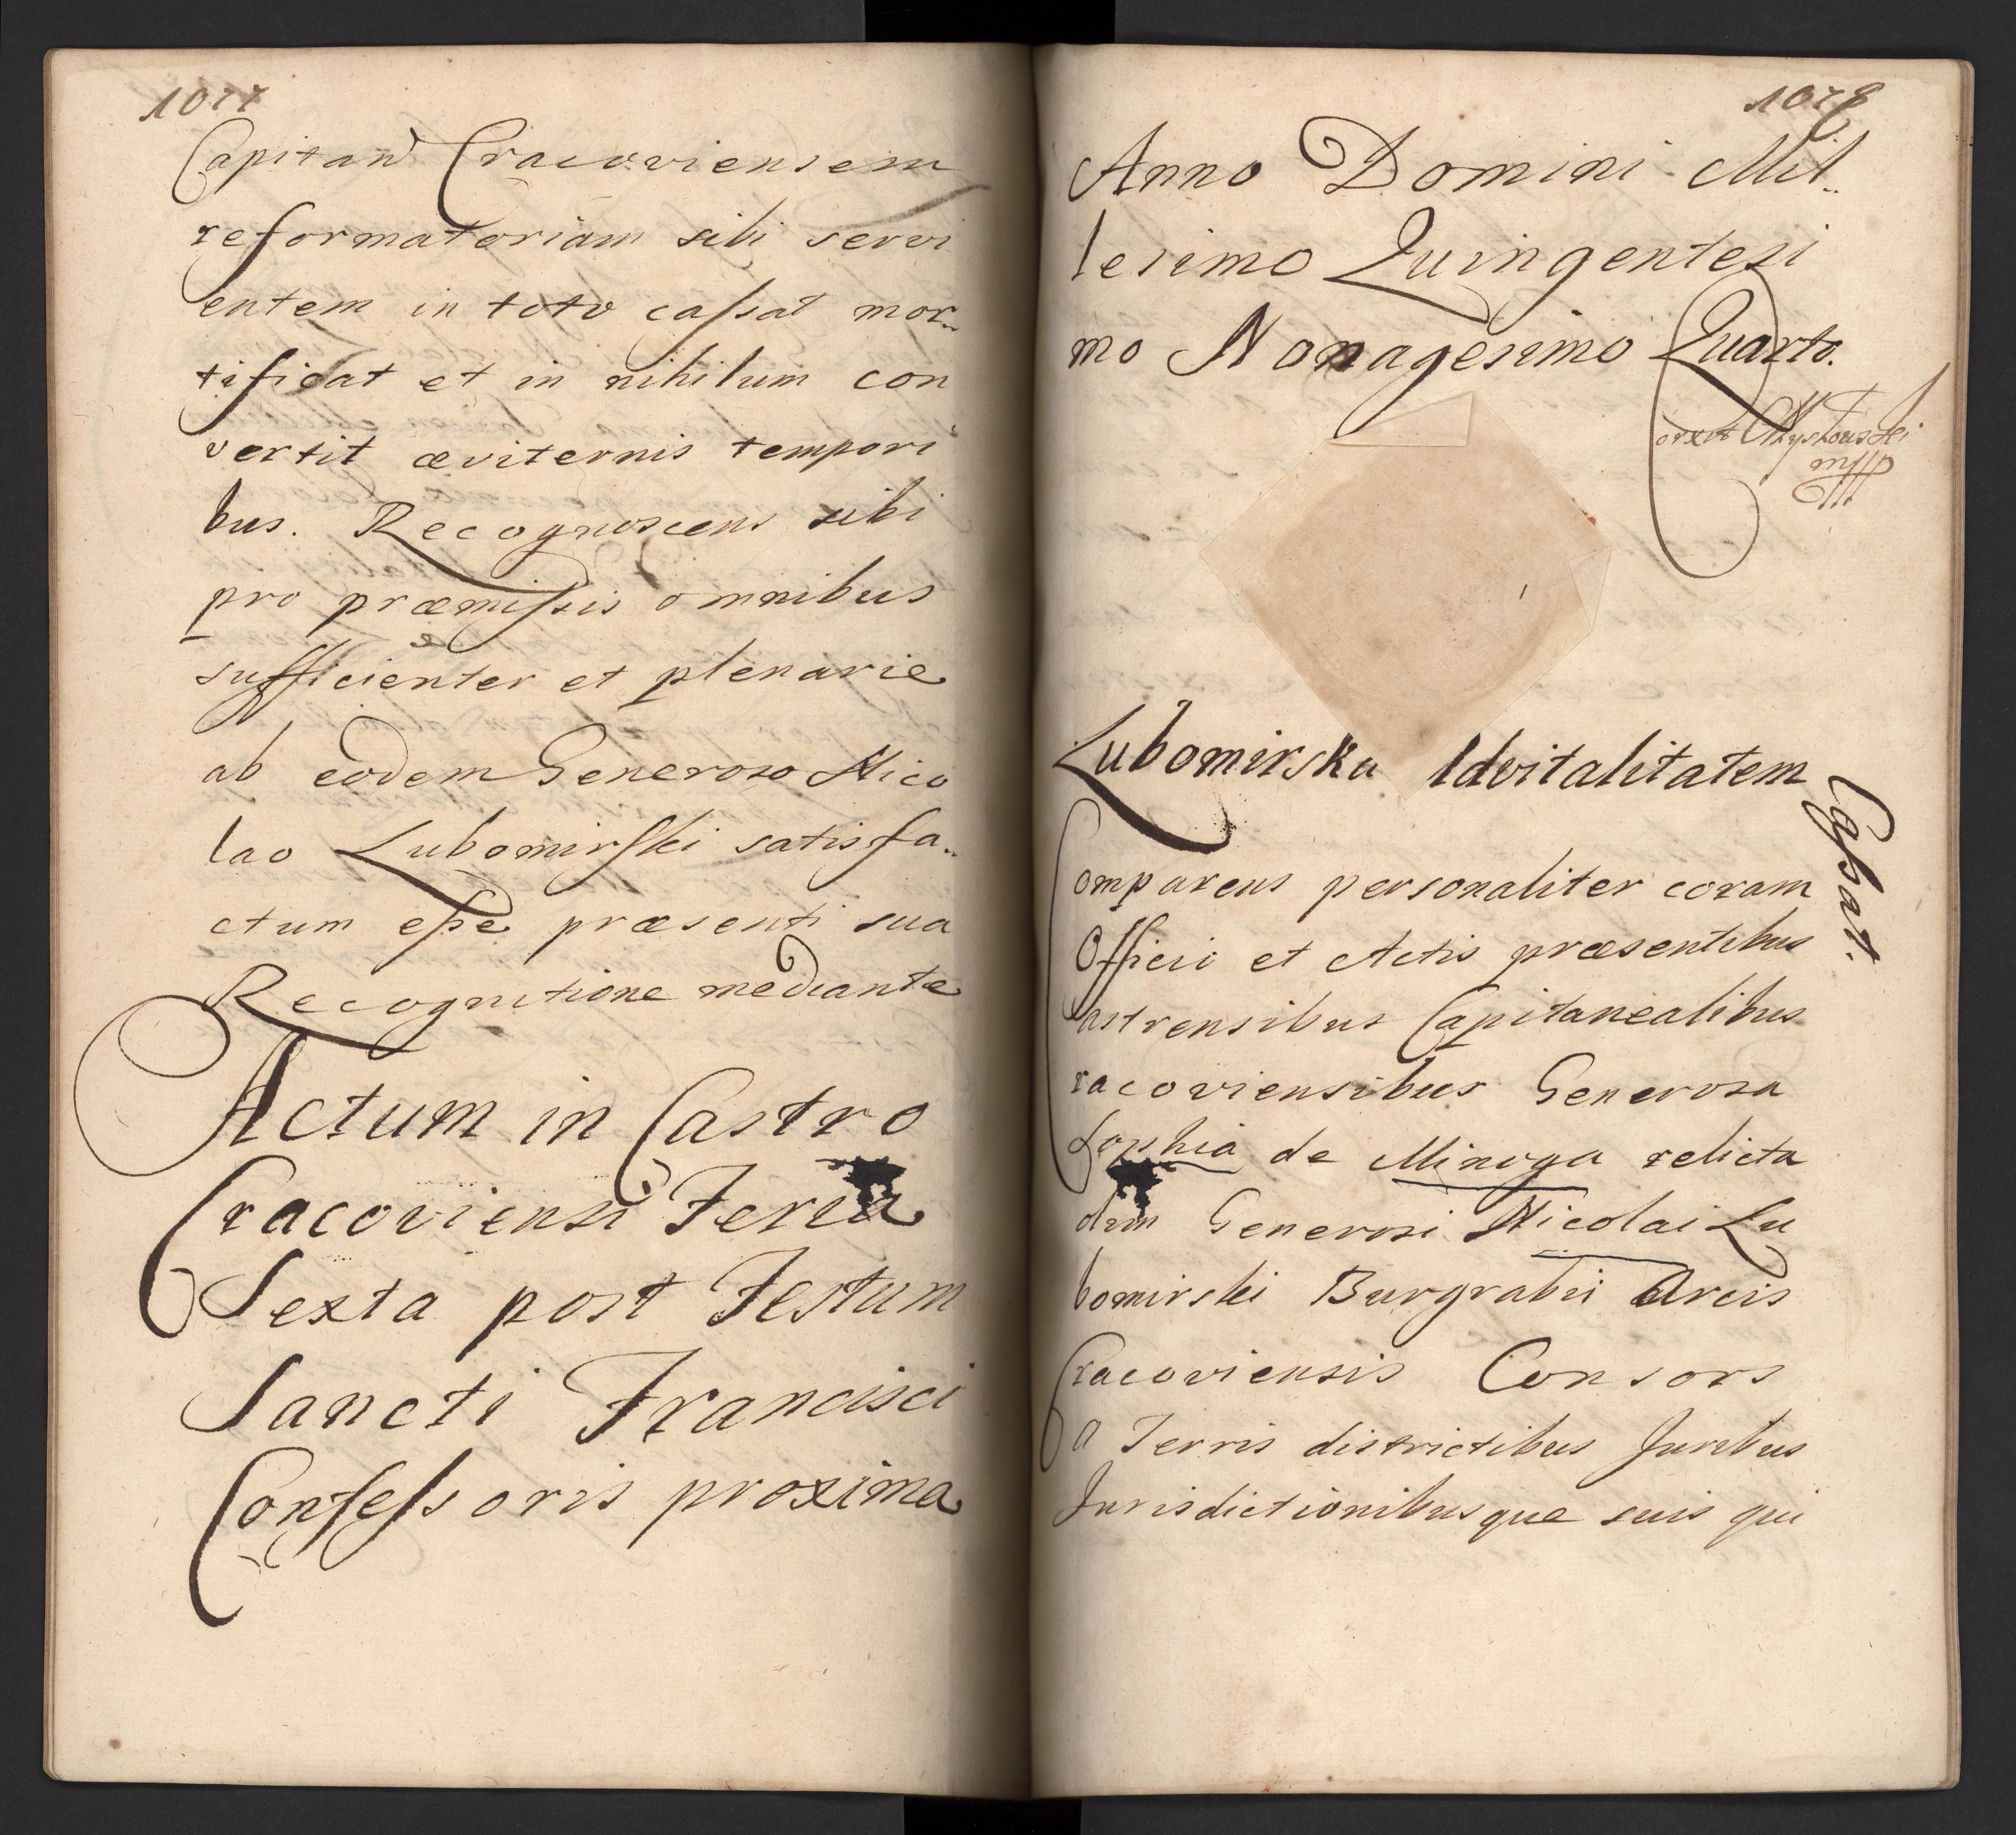 1077
Capitan Cracoviensem
reformatoriam sibi servi
entem in toto cassat mor..
tificat et in nihilum con
vertit æviternis tempori
bus. Recognoscens sibi
pro præmissis omnibus
sufficienter et plenarie
ab eodem Generoso Nico
lao Lubomirski satisfa..
ctum esse præsenti sua
Recognitione mediante
Actum in Castro
Cracoviensi Feria
Sexta post Festum
Sancti Francisci
Confessoris proxima
1078
Anno Domini Mil..
lesimo Quingentesi
mo Nonagesimo Quarto.
Lubomirska Advitalitatem
Casat.
Comparens personaliter coram
Officio et Actis præsentibus
Castrensibus Capitanealibus
Cracoviensibus Generosa
Sophia de Minoga relicta
olim Generosi Nicolai Lu
bomirski Burgrabii Arcis
Cracoviensis Consors
a Terris districtibus Juribus
Jurisdictionibusque suis qui